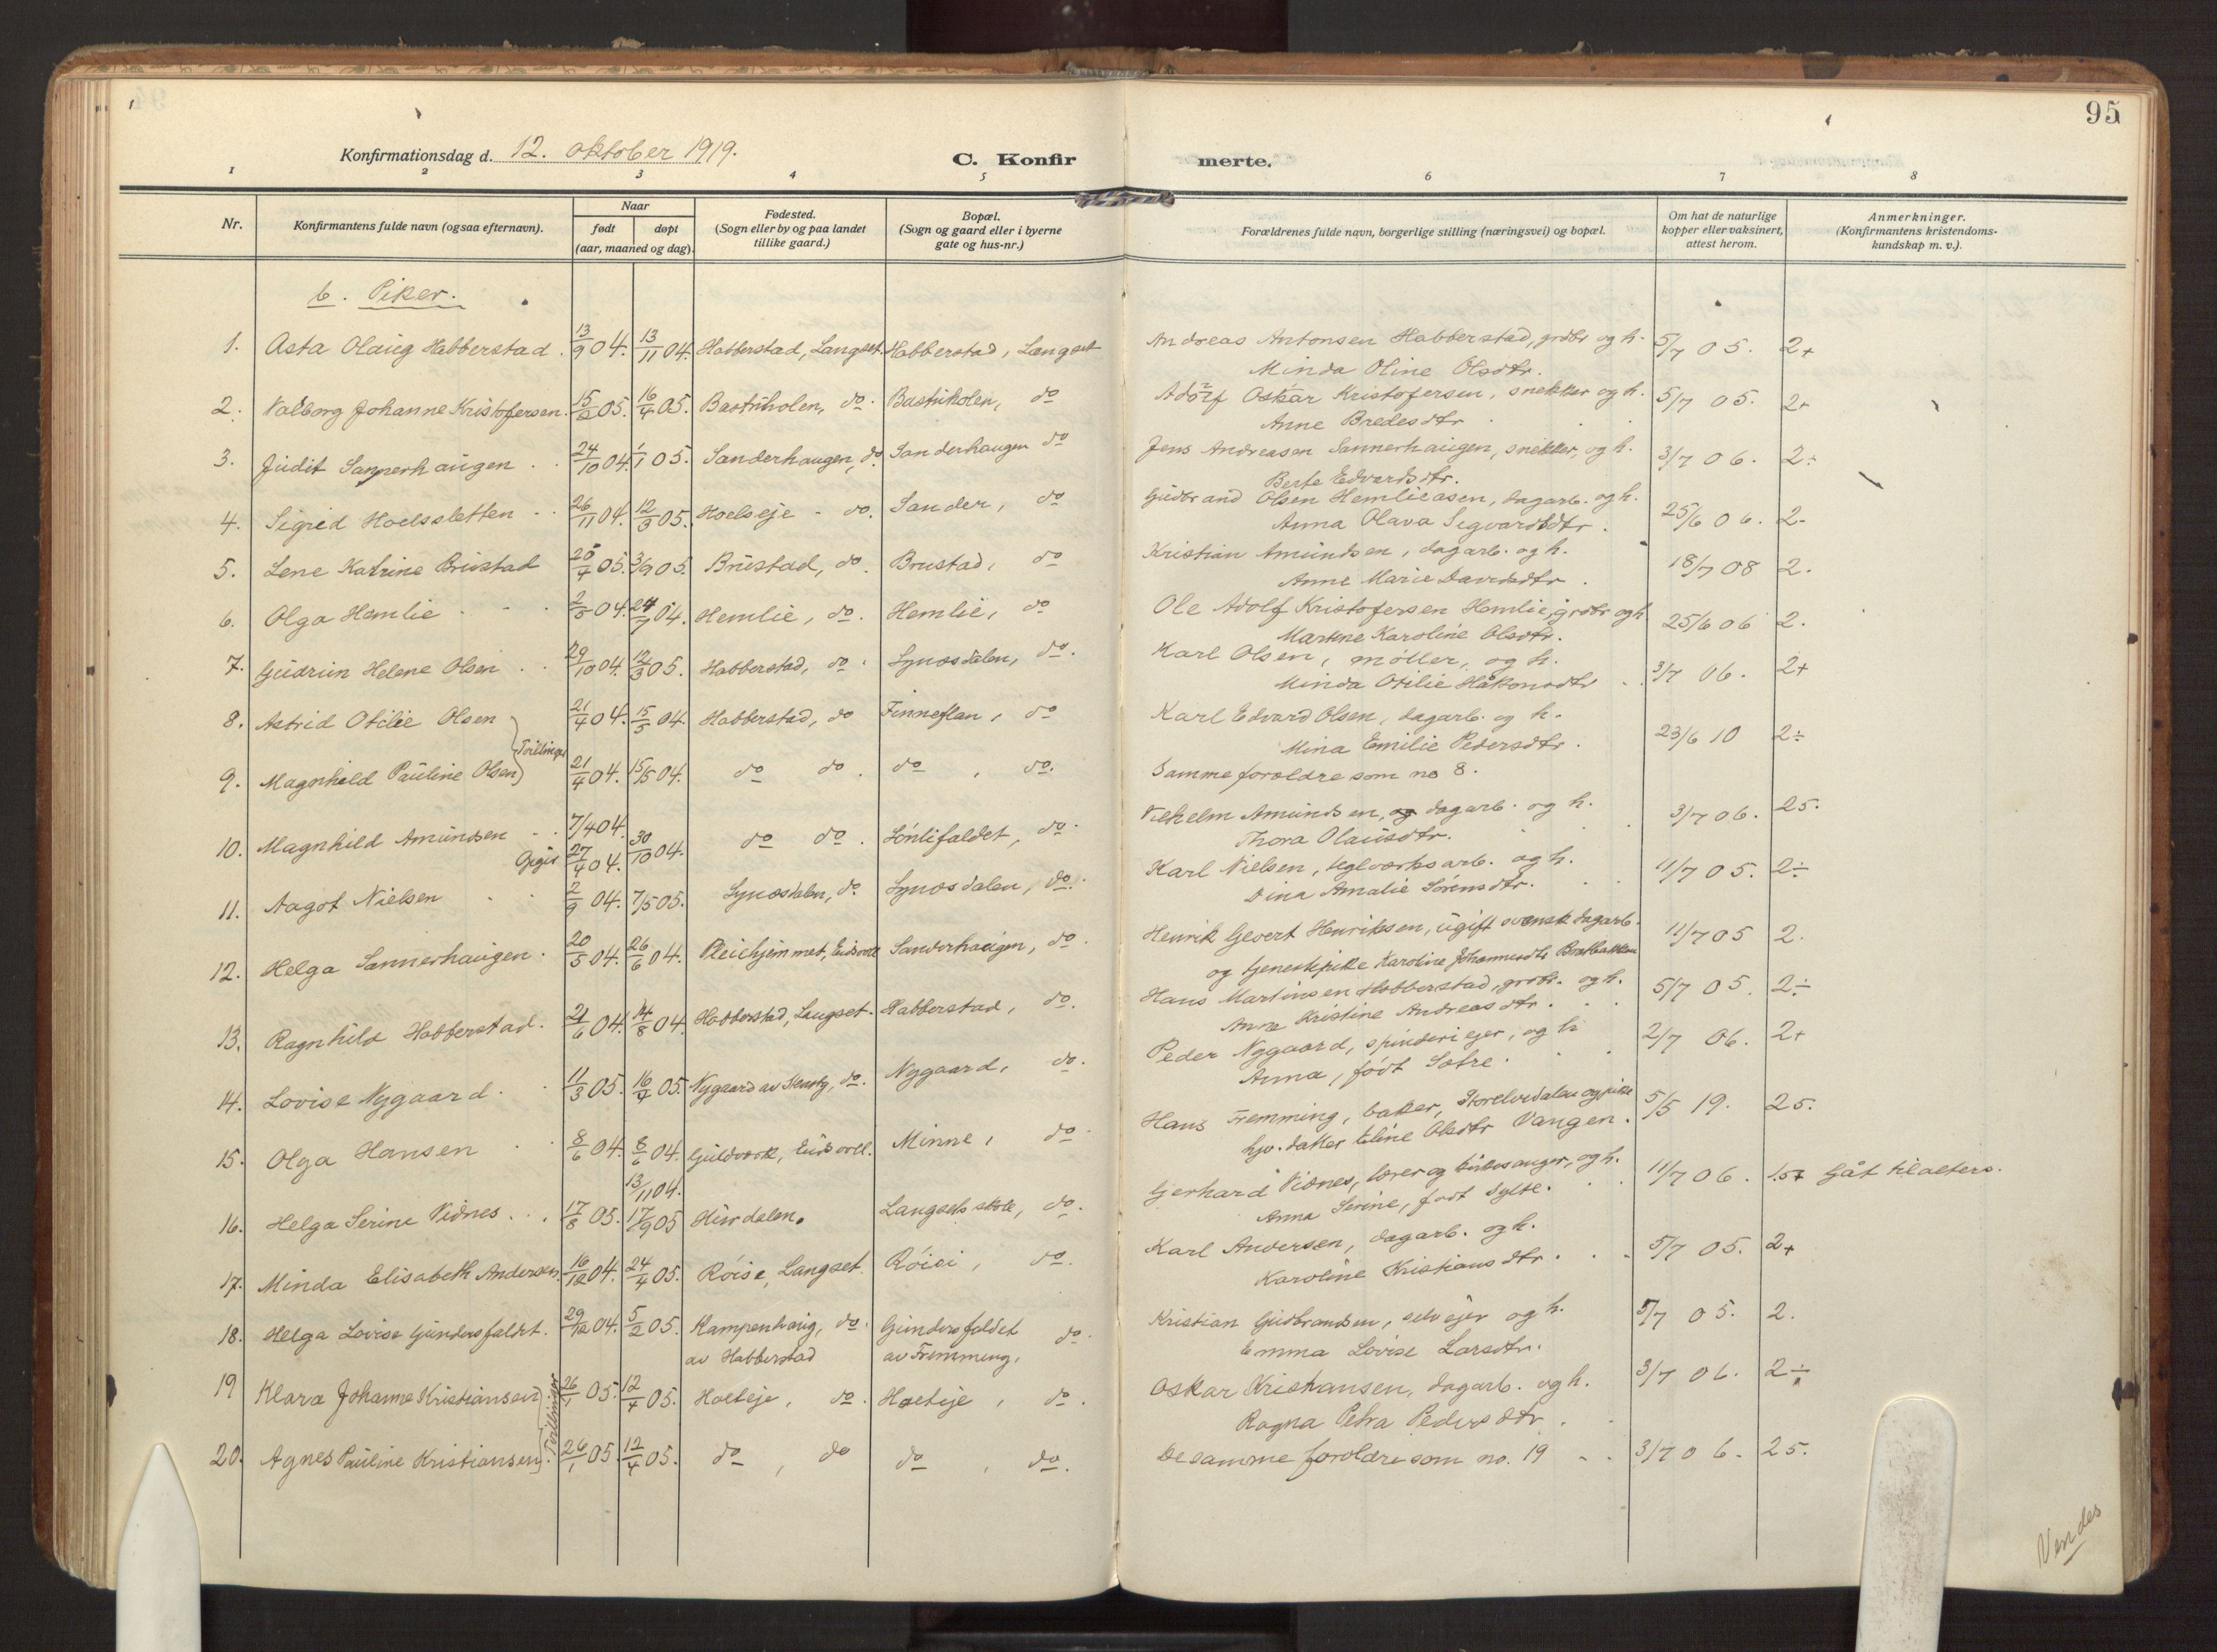 95
Konfirmationsdag d. 12. oktober 1919.
C. Konfir merte.
1 2 3 4 5 6 7 8
Nr.
Konfirmantens fulde navn (ogsaa efternavn).
Naar
født døpt
(aar, maaned og dag).
Fødested.
(Sogn eller by og paa landet
tillike gaard.)
Bopæl.
(Sogn og gaard eller i byerne
gate og hus-nr.)
Forældrenes fulde navn, borgerlige stilling (næringsvei) og bopæl.
Om hat de naturlige
kopper eller vaksinert,
attest herom.
Anmerkninger.
(Konfirmantens kristendoms-
kundskap m. v.).
b. Piker.
1. Asta Olaug Habberstad. 13/9 04. 13/11 04. Habberstad, Langset. Habberstad, Langset Andreas Antonsen Habberstad, grdbr og h. 5/7 05. 2+
Minda Oline Olsdtr.
2. Valborg Johanne Kristofersen. 15/2 05. 16/4 05. Bastuholen, do. Bastuholen, do Adolf Oskar Kristofersen, snekker og h. 5/7 05. 2+
Anne Bredesdtr
3. Judit Sannerhaugen . . 24/10 04. 1/1 05. Sanderhaugen, do. Sanderhaugen do Jens Andreasen Sannerhaugen, snekker, og h. 3/7 06. 2÷
Berte Edvardsdtr.
4. Sigrid Hoelssletten . . 26/11 04. 12/3 05. Hoelseje - do. Sander, do Gudbrand Olsen Hemlieasen, dagarb. og h. 25/6 06. 2-
Anna Olava Segvardsdtr.
5. Lene Katrine Brustad 20/4 05. 3/9 05. Brustad, do. Brustad, do Kristian Amundsen, dagarb. og h. 18/7 08 2.
Anne Marie Davidsdtr.
6. Olga Hemlie . . . 2/5 04. 24/7 04. Hemlie, do. Hemlie, do Ole Adolf Kristofersen Hemlie, grdbr og h 25/6 06 2.
Martine Karoline Olsdtr.
7. Gudrun Helene Olsen . . 29/10 04. 12/3 05. Habberstad, do. Lynæsdalen, do. Karl Olsen, møller, og h. 3/7 06. 2+
Minda Otilie Håkonsdtr
8. Astrid Otilie Olsen 21/4 04. 15/5 04. Habberstad, do Finneflan, do Karl Edvard Olsen, dagarb. og h. 23/6 10 2÷
Tvillinger
Mina Emilie Pedersdtr.
9. Magnhild Pauline Olsen 21/4 04. 15/5 04. do do. do, do. Samme forældre som no 8.
10. Magnhild Amundsen . . 7/4 04. 30/10 04. do do. Lønlifaldet, do. Vilhelm Amundsen, og dagarb. og h. 3/7 06. 25.
27/4 04. Thora Olausdtr.
11. Aagot Nielsen . . 2/9 04. 7/5 05. Lynæsdalen, do. Lynæsdalen, do. Karl Nielsen, teglværksarb. og h. 11/7 05. 2÷
Dina Amalie Sørensdtr.
12. Helga Sannerhaugen. 20/5 04. 26/6 04. Pleiehjemmet, Eidsvold Sanderhaugen, do. Henrik Gevert Henriksen, ugift svensk dagarb. 11/7 05 2.
og tjenestepike Karoline Johannesdtr
13. Ragnhild Habberstad. 21/6 04. 14/8 04. Habberstad, Langset. Habberstad, do. Hans Martinsen Habberstad, grdbr. og h. 5/7 05. 2÷
Anne Kristine Andreasdtr.
14. Lovise Nygaard. 11/3 05. 16/4 05. Nygaard av, do. Nygaard, do. Peder Nygaard, spinderiejer, og h 2/7 06. 2+
Anna, født Sætre.
15. Olga Hansen . . 8/6 04. 8/6 04. Guldværk, Eidsvoll. Minne, do. Hans Fremming, baker, Storelvedalen og pike 5/5 19. 25.
Eline Olsdtr Vangen.
13/11 04.
16. Helga Serine Vidnes . . . 17/8 05. 17/9 05 Hurdalen. Langseth skole, do. Gerhard Vidnes, lærer og kirkesanger, og h. 11/7 06. 1.5+ Gåt til alters.
Anna Serine, født Sylte.
17. Minda Elisabeth Andersen. 16/12 04. 24/4 05. Røise, Langset. Røisi, do. Karl Andersen, dagarb. og h. 5/7 05. 2+
Karoline Kristiansdtr.
18. Helga Lovise Gundersfaldet. 29/12 04. 5/2 05. Kampenhaug, do. Gundersfaldet do. Kristian Gudbrandsen, selvejer og h. 5/7 05. 2.
av Habberstad av Fremming,
Emma Lovise Larsdtr.
19 Klara Johanne Kristiansen 26/1 05. 12/4 05. Hoelseje, do. Hoelseje, do. Oskar Kristiansen, dagarb. og h. 3/7 06. 2÷
Tvillinger
Ragna Petra Pedersdtr.
20. Agnes Pauline Kristiansen 26/1 05. 12/4 05. do, do do, do. De samme forældre som no. 19 . . 3/7 06. 25.
Vendes